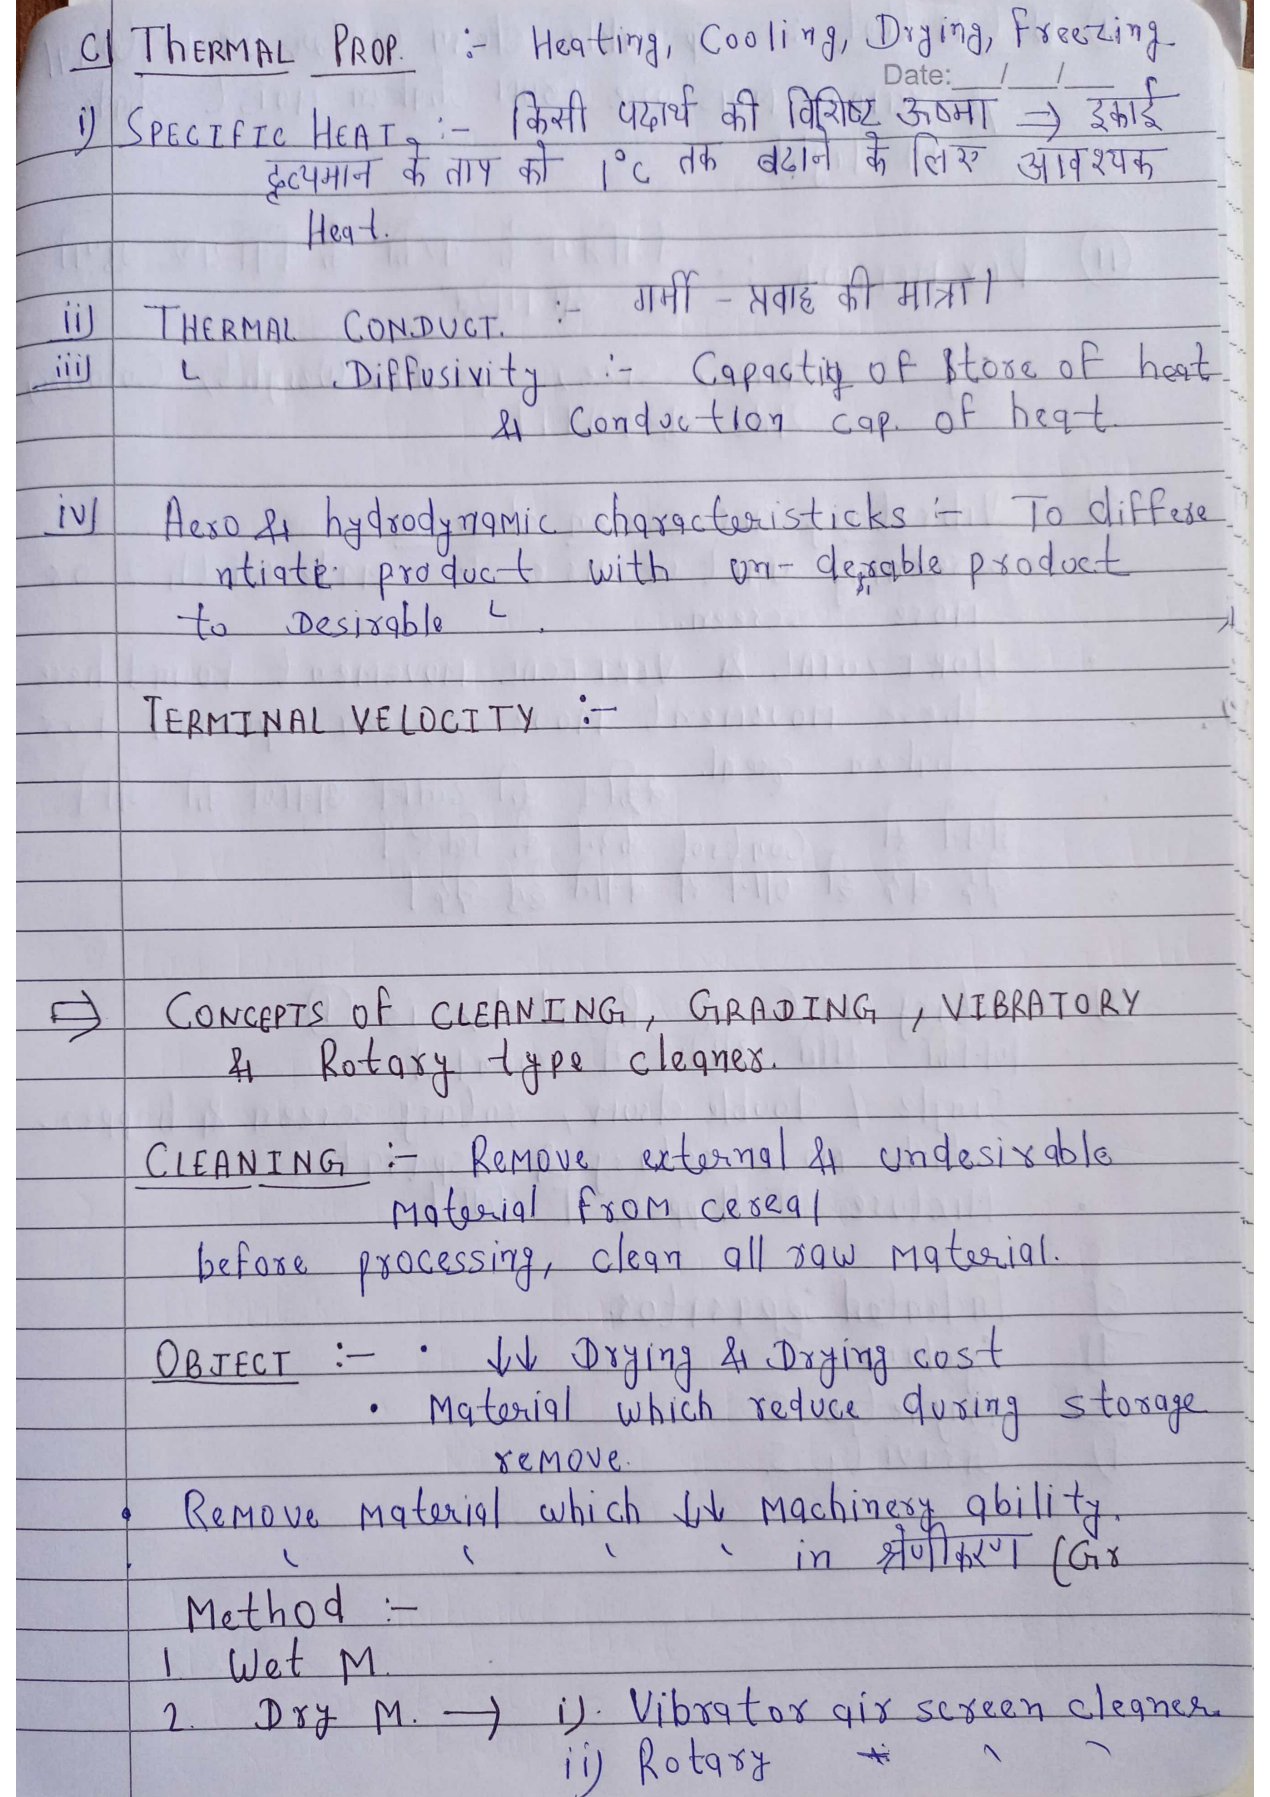 C) THERMAL PROP. :- Heating, Cooling, Drying, Freezing
Date: __/__/__
i) SPECIFIC HEAT :- किसी पदार्थ की विशिष्ट ऊष्मा ⇒ इकाई
द्रव्यमान के ताप को 1°C तक बढ़ाने के लिए आवश्यक
Heat.
ii) THERMAL CONDUCT. :- गर्मी - प्रवाह की मात्रा।
iii) " Diffusivity :- Capactiy of store of heat
& Conduction cap. of heat.
iv) Aero & hydrodynamic characteristicks :- To differe
ntiate product with un-desirable product
to Desirable ".
TERMINAL VELOCITY :-
⇒ CONCEPTS OF CLEANING, GRADING, VIBRATORY
& Rotary type cleaner.
CLEANING :- Remove external & undesirable
Material from cereal
before processing, clean all raw material.
OBJECT :- • ↓↓ Drying & Drying cost
• Material which reduce during storage
remove.
• Remove material which ↓↓ Machinery ability.
• " " " " in श्रेणीकरण (Gr
Method :-
1 Wet M.
2. Dry M. → i). Vibrator air screen cleaner.
ii) Rotary " " "